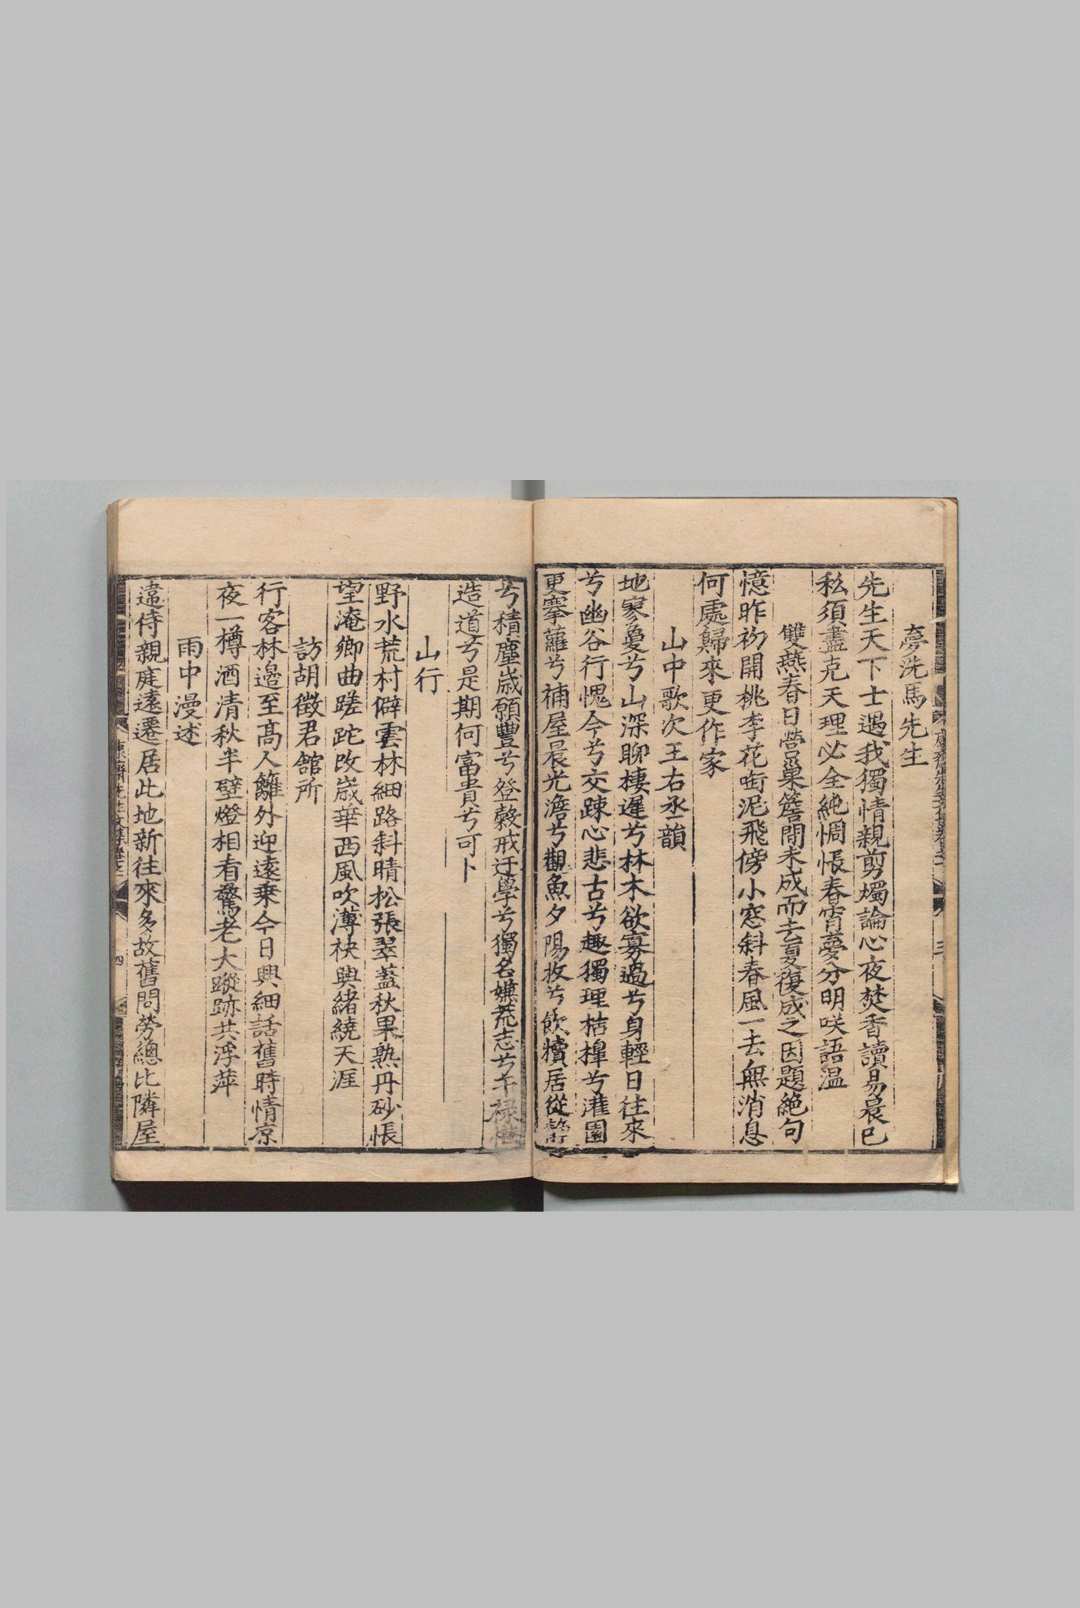 夢洗馬先生
先生天下士遇我獨情親剪燭論心夜焚香讀易晨已
私須盡克天理必全純惆悵春宵夢分明咲語溫
雙燕春日營巢簷間未成而去夏復成之因題絶句
憶昨初開桃李花啣泥飛傍小窓斜春風一去無消息
何處歸來更作家
山中歌次王右丞韻
地寥敻兮山深聊棲遲兮林木欲寡過兮身輕日往來
兮幽谷行愧今兮交踈心悲古兮趣獨理桔槹兮灌園
更牽蘿兮補屋晨光澹兮觀魚夕陽放兮飲犢居從
兮積塵歲願豐兮登穀戒迂學兮獨名嫌荒志兮干祿
造道兮是期何富貴兮可卜
山行
野水荒村僻雲林細路斜晴松張翠蓋秋果熟丹砂悵
望淹鄉曲蹉跎改歲華西風吹薄袂興緒繞天涯
訪胡徵君館所
行客林邉至髙人籬外迎遠乘今日興細話舊時情凉
夜一樽酒清秋半壁燈相看驚老大蹤跡共浮萍
雨中漫述
違侍親庭遠遷居此地新往來多故舊問勞總比隣屋
三
四